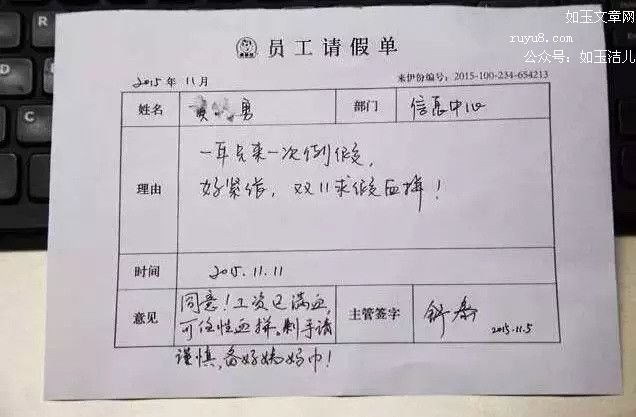 如玉文章网
ruyu8.com
公众号：如玉洁儿
员工请假单
2015年11月 来伊份编号：2015-100-234-654213
姓名 勇 部门 信息中心
理由
一年只来一次例假，
好紧张，双11求假血拼！
时间 2015.11.11
意见
同意！工资已满血，
可任性血拼。剁手请
谨慎，备好姨妈巾！
主管签字 2015.11.5